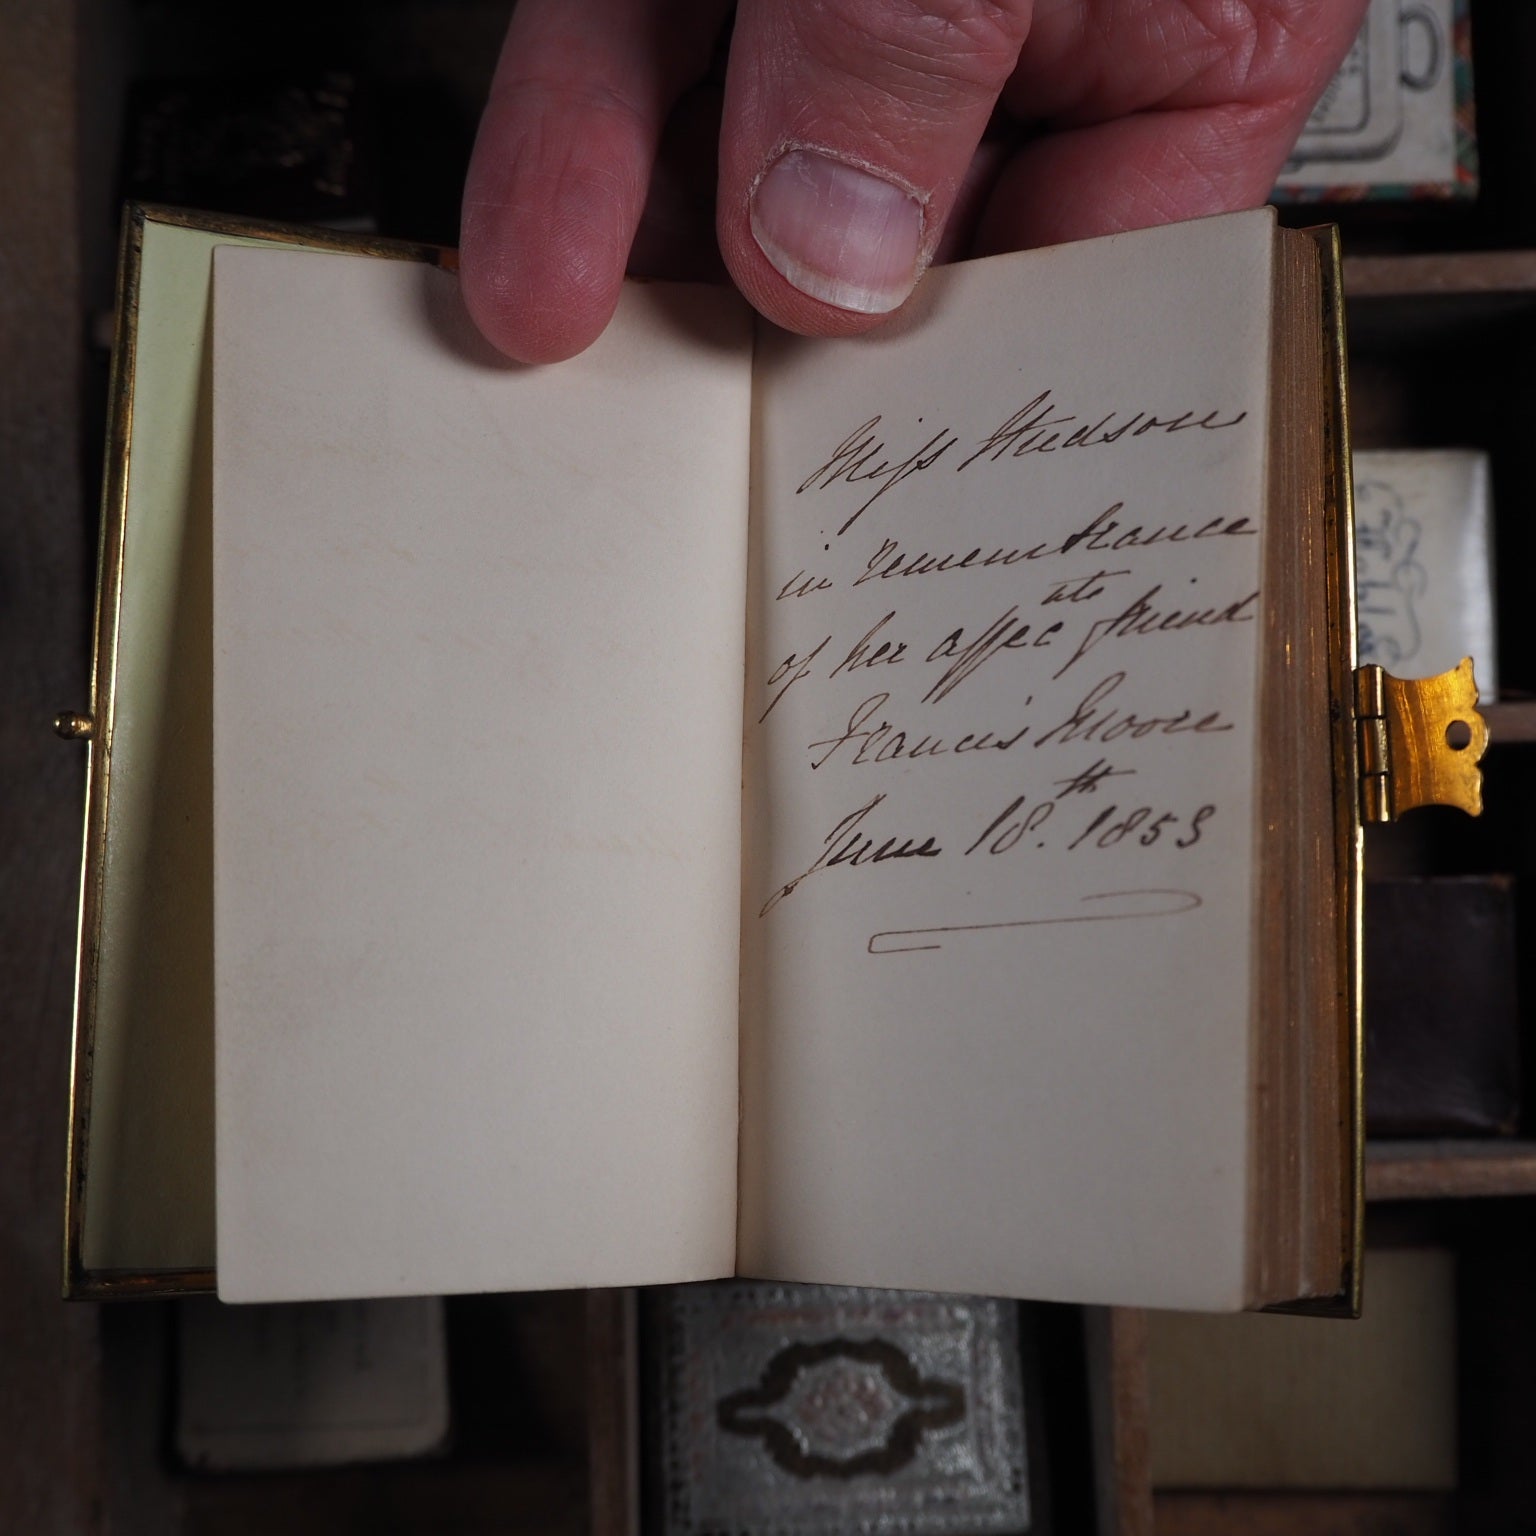 Miss Hudson
in remembrance
of her affec^ate friend
Francis Moore
June 18.th 1853